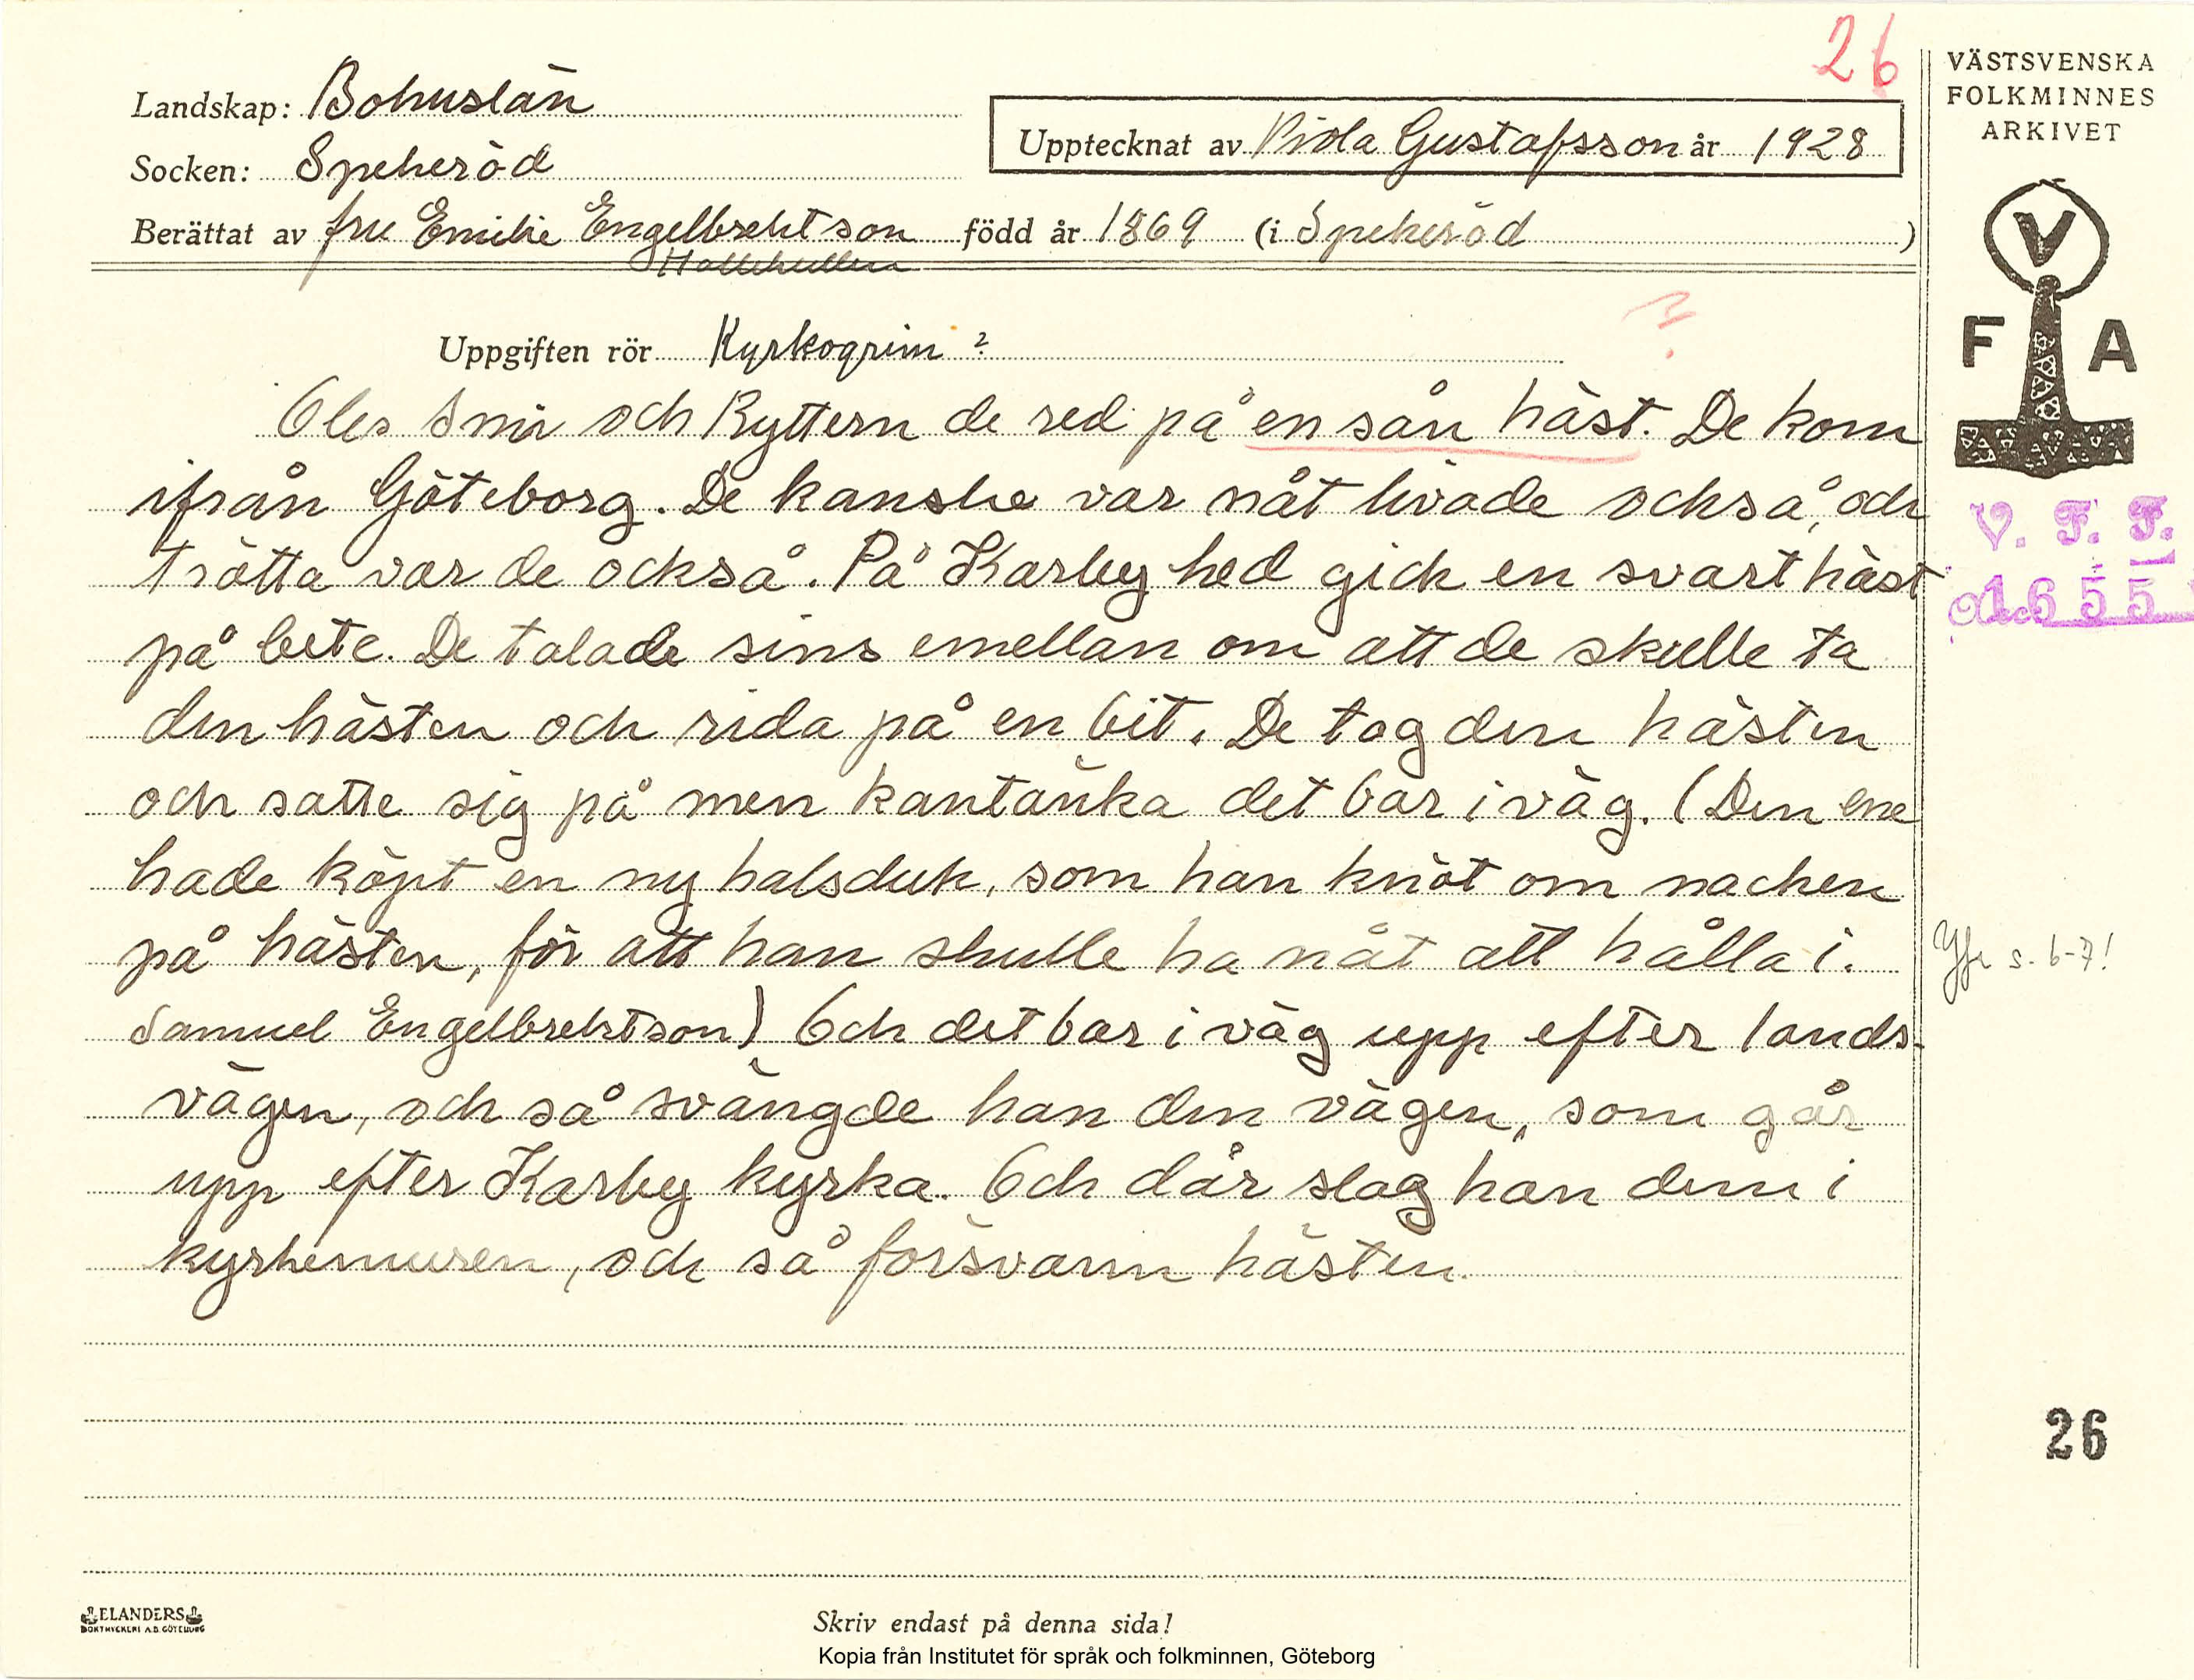 26
VÄSTSVENSKA
FOLKMINNES
ARKIVET
Landskap: Bohuslän
Upptecknat av Viola Gustafsson år 1928
Socken: Spekeröd
Berättat av fru Emilie Engelbrektson född år 1869 (i Spekeröd)
Hällekullen
V
F A
Uppgiften rör Kyrkogrim?
?
Oles Smi och Ryttern de red på en sån häst. De kom
ifrån Göteborg. De kanske var nåt livade också, och
trötta var de också. På Karby hed gick en svart häst
på bete. De talade sins emellan om att de skulle ta
den hästen och rida på en bit. De tog den hästen
och satte sig på men kantänka det bar i väg. (Den ene
hade köpt en ny halsduk, som han knöt om nacken
på hästen, för att han skulle ha nåt att hålla i.
Samuel Engelbrektson) Och det bar i väg upp efter lands-
vägen, och så svängde han den vägen, som går
upp efter Karby kyrka. Och där slog han dem i
kyrkemuren, och så försvann hästen.
V. F. F.
1655
Jfr s. 6-7!
26
ELANDERS
BOKTRYCKERI A.B. GÖTEBORG
Skriv endast på denna sida!
Kopia från Institutet för språk och folkminnen, Göteborg